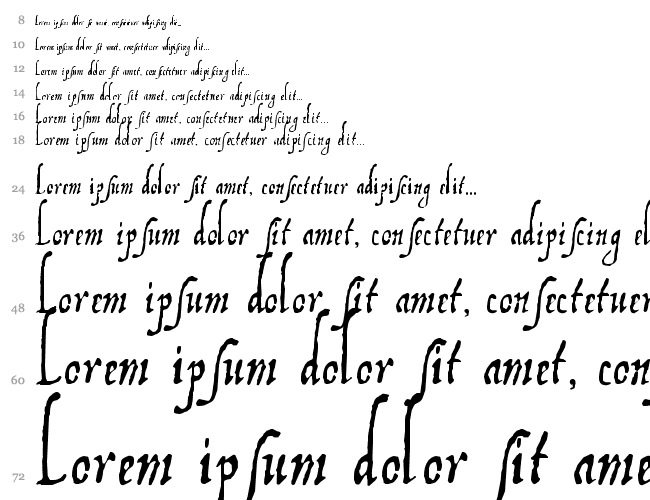 8 Lorem ipſum dolor ſit amet, conſectetuer adipiſcing elit...
10 Lorem ipſum dolor ſit amet, conſectetuer adipiſcing elit...
12 Lorem ipſum dolor ſit amet, conſectetuer adipiſcing elit...
14 Lorem ipſum dolor ſit amet, conſectetuer adipiſcing elit...
16 Lorem ipſum dolor ſit amet, conſectetuer adipiſcing elit...
18 Lorem ipſum dolor ſit amet, conſectetuer adipiſcing elit...
24 Lorem ipſum dolor ſit amet, conſectetuer adipiſcing elit...
36 Lorem ipſum dolor ſit amet, conſectetuer adipiſcing el
48 Lorem ipſum dolor ſit amet, conſectetuer
60 Lorem ipſum dolor ſit amet, con
72 Lorem ipſum dolor ſit ame